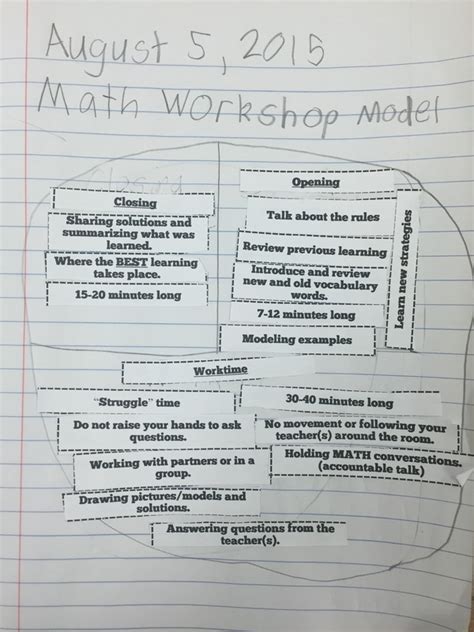 August 5, 2015
Math Workshop Model
Closing
Closing
Sharing solutions and
summarizing what was
learned.
Where the BEST learning
takes place.
15-20 minutes long
Opening
Talk about the rules
Review previous learning
Introduce and review
new and old vocabulary
words.
7-12 minutes long
Modeling examples
Learn new strategies
Worktime
"Struggle" time
30-40 minutes long
Do not raise your hands to ask
questions.
No movement or following your
teacher(s) around the room.
Working with partners or in a
group.
Holding MATH conversations.
(accountable talk)
Drawing pictures/models and
solutions.
Answering questions from the
teacher(s).